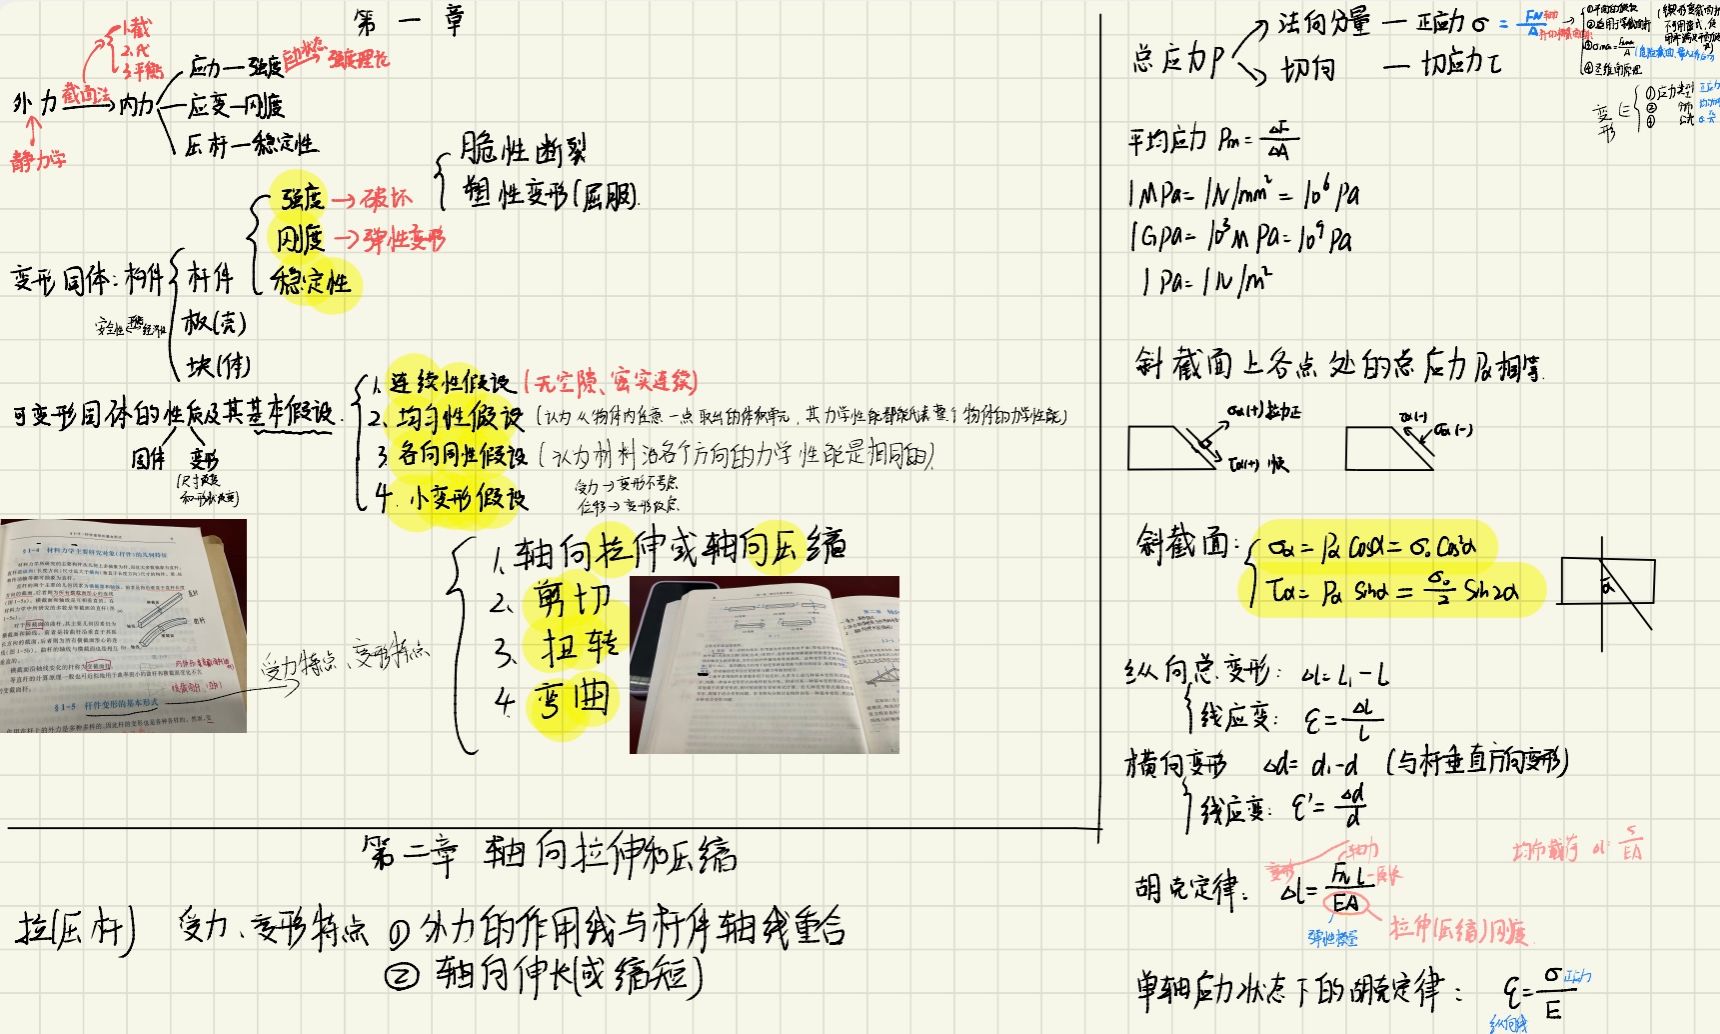 第一章
1.截
2.代
3.平衡
外力 截面法 内力
静力学
应力—强度 应力状态 强度理论
应变—刚度
压杆—稳定性
脆性断裂
塑性变形(屈服).
强度→破坏
刚度→弹性变形
稳定性
变形固体:构件
杆件
板(壳)
块(体)
安全性 经济性
可变形固体的性质及其基本假设.
固体 变形
(尺寸改变
和形状改变)
1.连续性假设(无空隙、密实连续)
2.均匀性假设(认为从物体内任意一点取出的体积单元,其力学性能都能代表整个物体的力学性能)
3.各向同性假设(认为材料沿各个方向的力学性能是相同的)
4.小变形假设
受力→变形不考虑
位移→变形考虑
受力特点、变形特点
1.轴向拉伸或轴向压缩
2、剪切
3、扭转
4.弯曲
§1-4 材料力学主要研究对象(杆件)的几何特征
§1-5 杆件变形的基本形式
第二章 轴向拉伸和压缩
拉(压杆) 受力、变形特点 ①外力的作用线与杆件轴线重合
②轴向伸长(或缩短)
总应力P
法向分量—正应力σ=FN/A
切向—切应力τ
变形
①应力类型 正应力
②
③
平均应力 Pm=ΔF/ΔA
1MPa=1N/mm²=10⁶Pa
1GPa=10³MPa=10⁹Pa
1Pa=1N/m²
斜截面上各点处的总应力Pα相等.
σα(+)拉为正
τα(+)顺
τα(-)
σα(-)
斜截面:
σα=Pα cosα=σ₀cos²α
τα=Pα sinα=σ₀/2 sin2α
α
纵向总变形:Δl=L₁-L
线应变:ε=ΔL/L
横向变形 Δd=d₁-d (与杆垂直方向变形)
线应变:ε'=Δd/d
均布载荷
胡克定律: Δl=FN L/EA
变形 轴力 原长
弹性模量
拉伸(压缩)刚度.
单轴应力状态下的胡克定律: ε=σ/E
正应力
纵向线